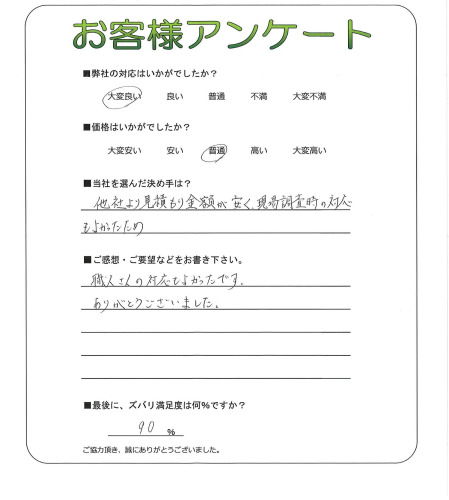 お客様アンケート
■弊社の対応はいかがでしたか？
大変良い 良い 普通 不満 大変不満
■価格はいかがでしたか？
大変安い 安い 普通 高い 大変高い
■当社を選んだ決め手は？
他社より見積もり金額が安く、現場調査時の対応
もよかったため
■ご感想・ご要望などをお書き下さい。
職人さんの対応もよかったです。
ありがとうございました。
■最後に、ズバリ満足度は何%ですか？
90 %
ご協力頂き、誠にありがとうございました。